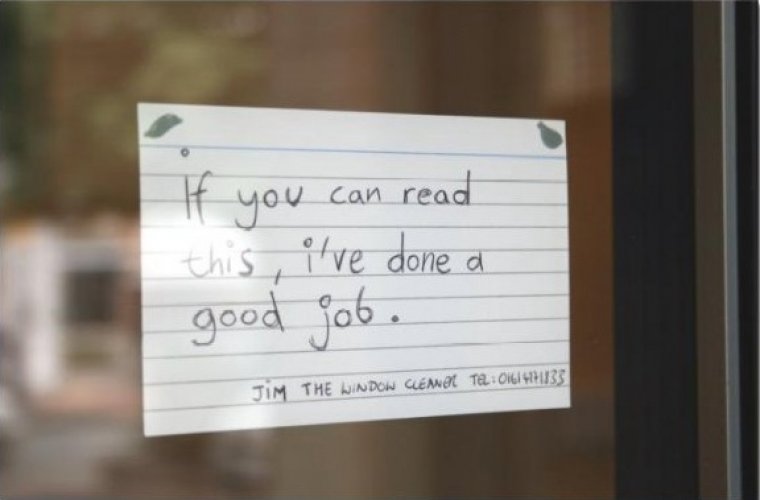 if you can read
this, i've done a
good job.
JiM THE WINDOW CLEANER TEL: